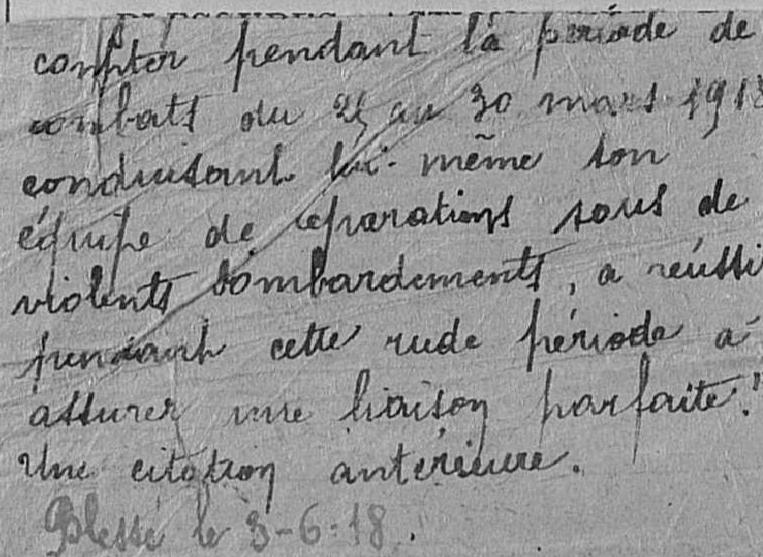 compter pendant la période de
combats du 25 au 30 mars 1918
conduisant lui-même son
équipe de réparations sous de
violents bombardements, a réussi
pendant cette rude période à
assurer une liaison parfaite."
Une citation antérieure.
Blessé le 3-6-18.